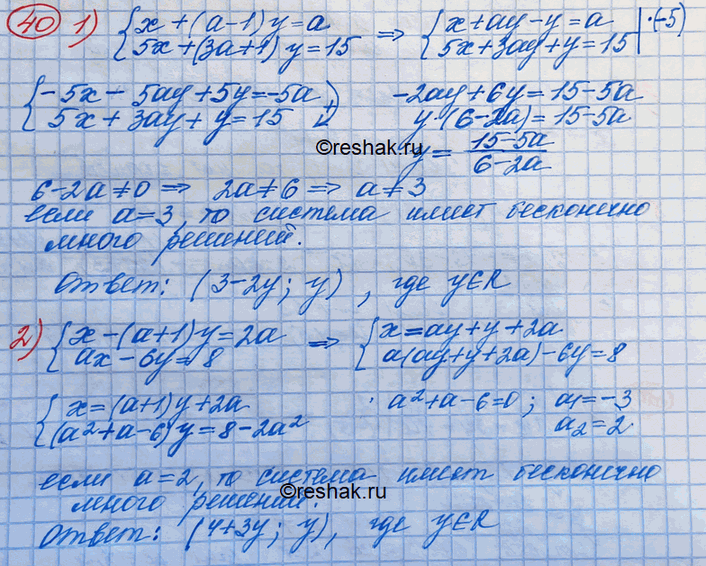 40 1) { x + (a-1) y = a => { x + ay - y = a | ·(-5)
5x + (3a+1) y = 15 5x + 3ay + y = 15
{ -5x - 5ay + 5y = -5a + -2ay + 6y = 15 - 5a
5x + 3ay + y = 15 y (6-2a) = 15 - 5a
©reshak.ru y = (15-5a)/(6-2a)
6-2a ≠ 0 => 2a ≠ 6 => a ≠ 3
если a = 3, то система имеет бесконечно
много решений.
Ответ: (3-2y; y), где y∈R
2) { x - (a+1) y = 2a => { x = ay + y + 2a
ax - 6y = 8 a(ay + y + 2a) - 6y = 8
{ x = (a+1) y + 2a a² + a - 6 = 0; a₁ = -3
(a² + a - 6) y = 8 - 2a² a₂ = 2
если a = 2, то система имеет бесконечно
много решений.
©reshak.ru
Ответ: (4+3y; y), где y∈R